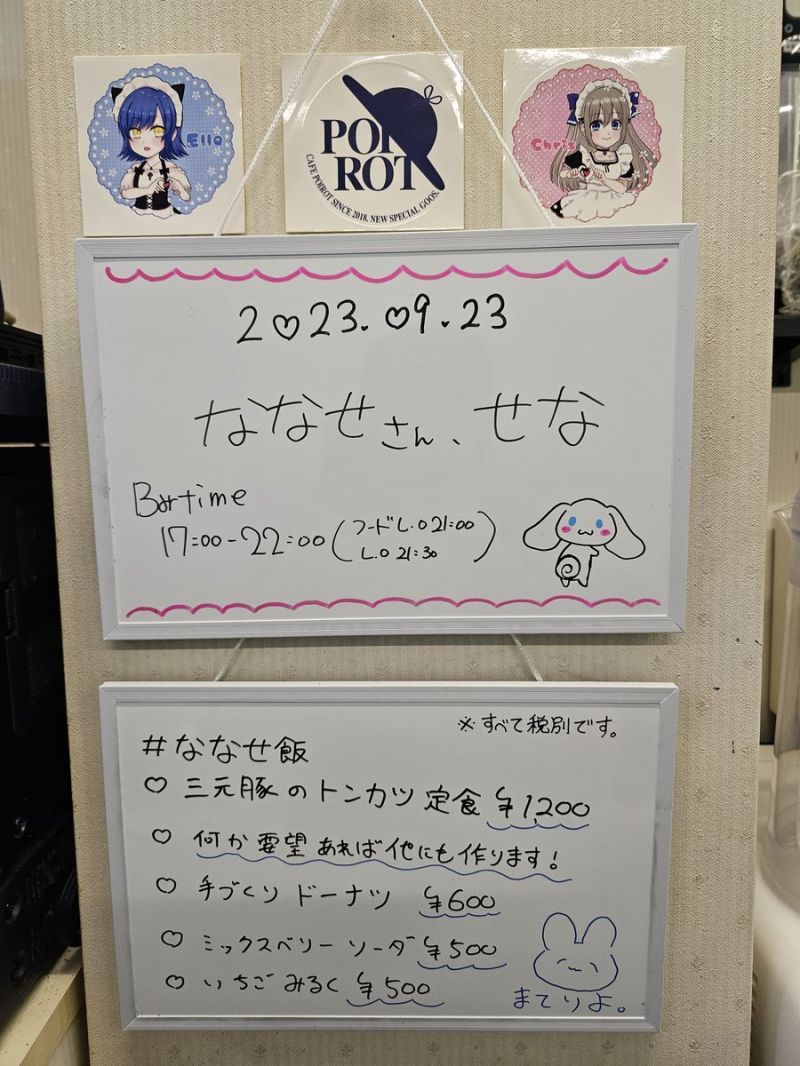 Ella
POIROT
CAFE POIROT SINCE 2018. NEW SPECIAL GOOS.
Chris
2♡23.♡9.23
ななせさん、せな
Bartime
17:00-22:00(フードL.O 21:00
L.O 21:30)
※すべて税別です。
#ななせ飯
♡ 三元豚のトンカツ定食 ¥1,200
♡ 何か要望あれば他にも作ります!
♡ 手づくりドーナツ ¥600
♡ ミックスベリーソーダ ¥500
♡ いちごみるく ¥500
まてりよ。